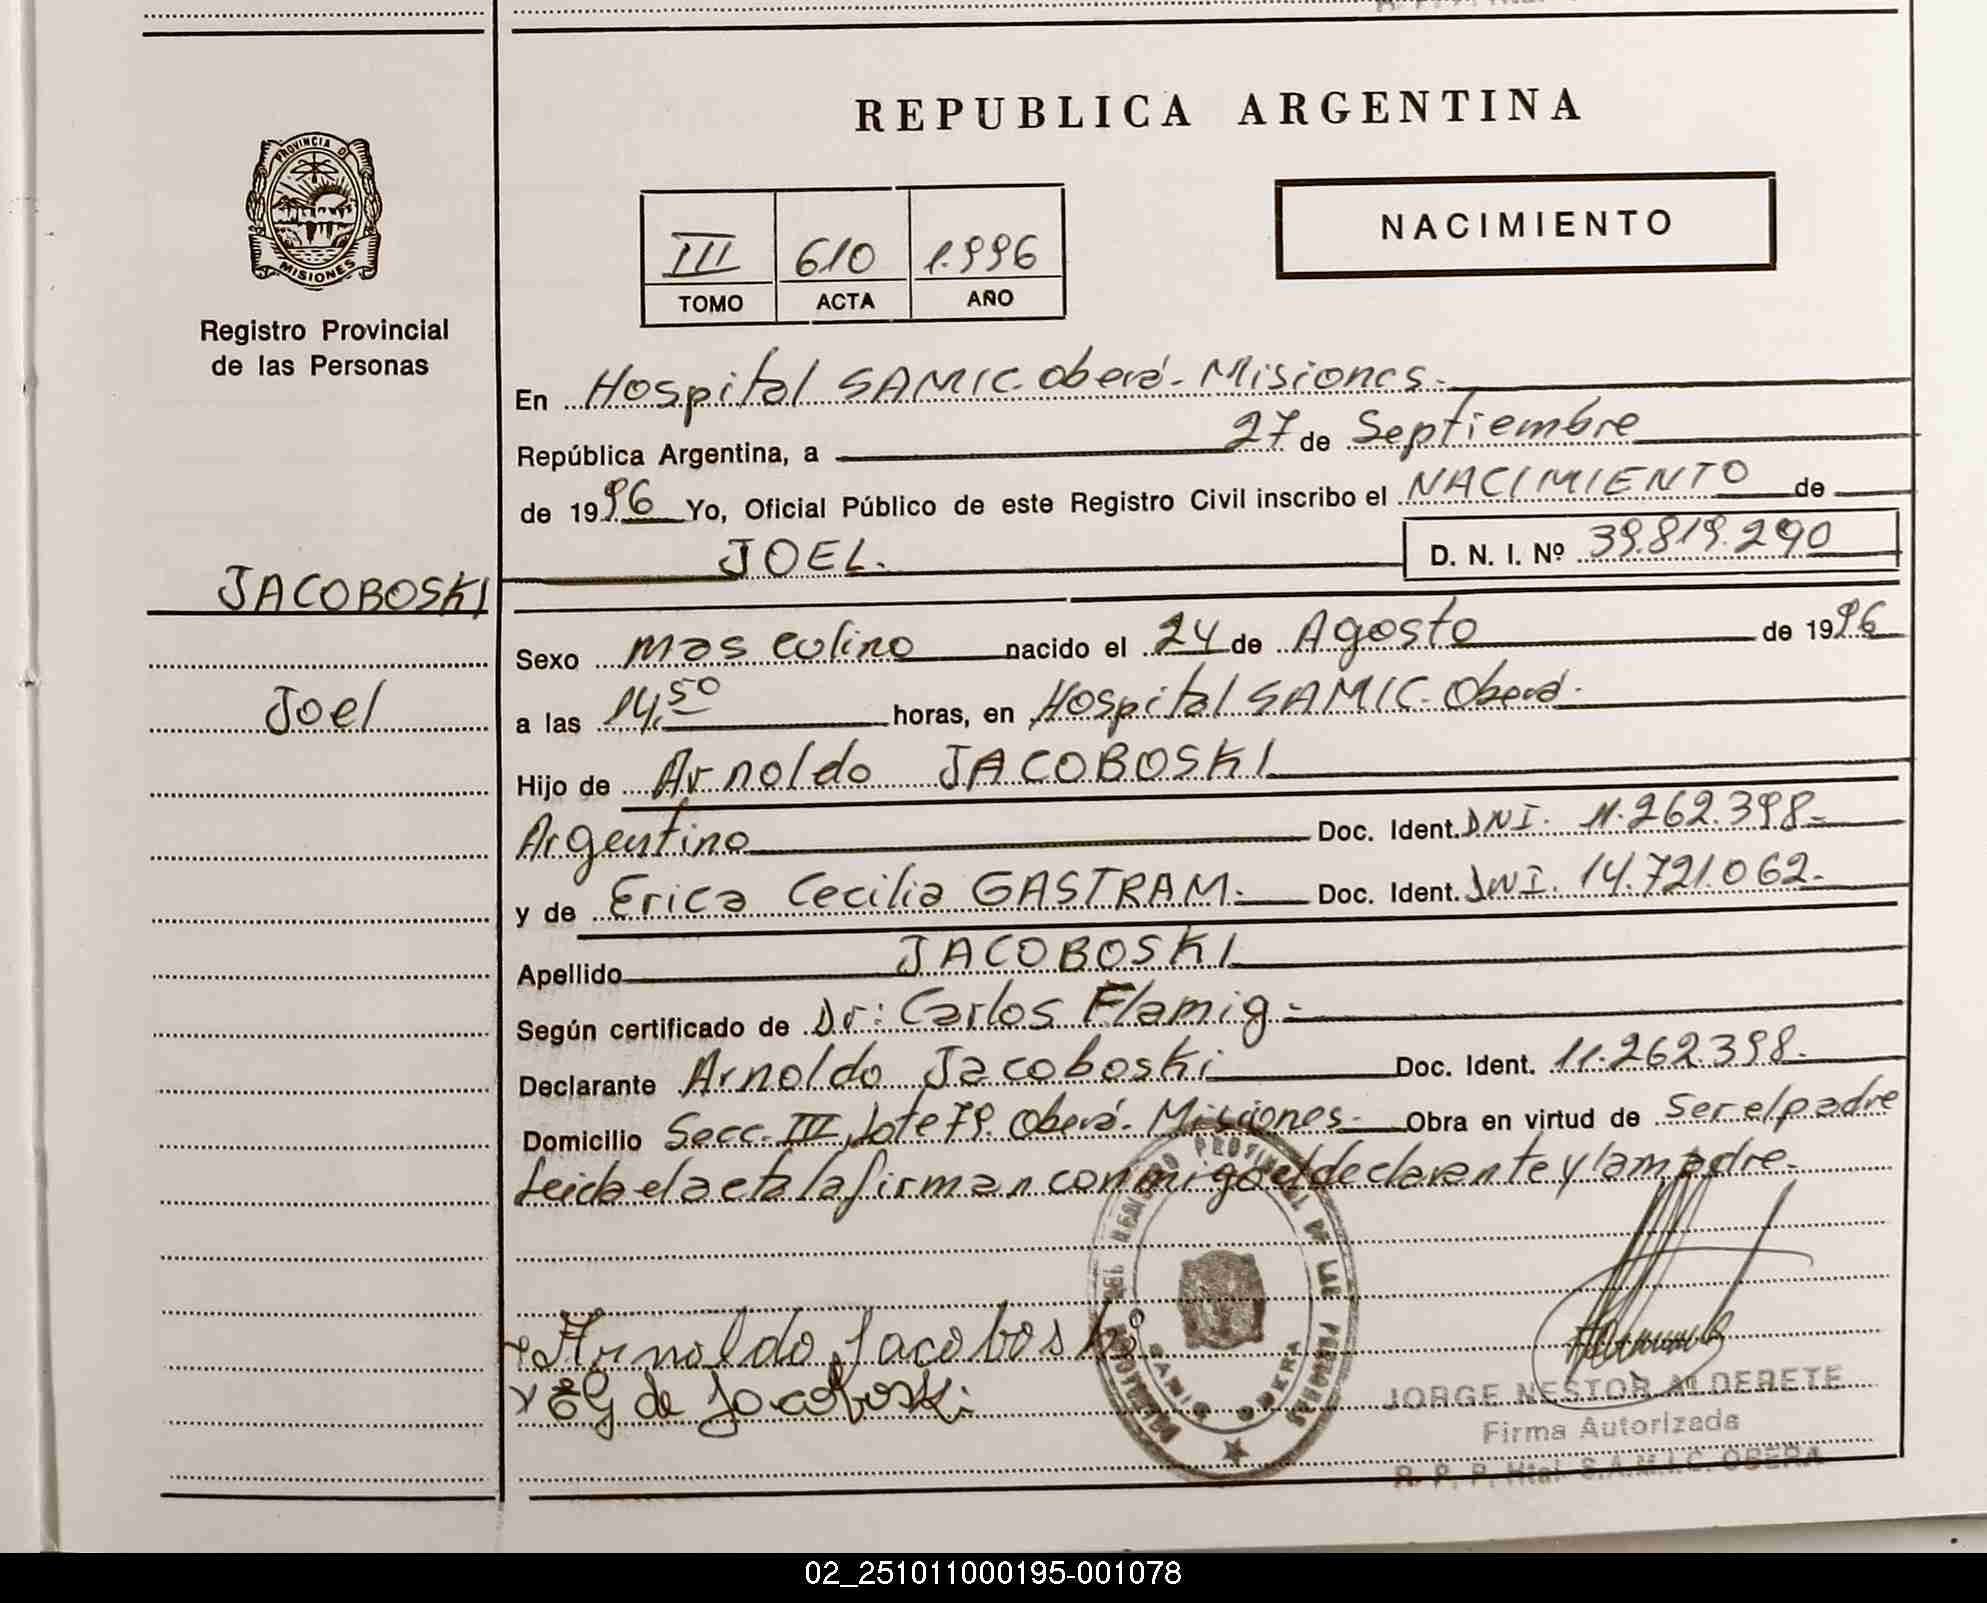 REPUBLICA ARGENTINA
PROVINCIA DE
MISIONES
Registro Provincial
de las Personas
III 610 1.996
TOMO ACTA AÑO
NACIMIENTO
En Hospital SAMIC. Oberá - Misiones.-
República Argentina, a 27 de Septiembre
de 1996 Yo, Oficial Público de este Registro Civil inscribo el NACIMIENTO de
JOEL. D. N. I. Nº 39.819.290
JACOBOSKI
Joel
Sexo masculino nacido el 24 de Agosto de 1996
a las 14,50 horas, en Hospital SAMIC. Oberá.
Hijo de Arnoldo JACOBOSKI
Argentino Doc. Ident. DNI. 11.262.398.-
y de Erica Cecilia GASTRAM.- Doc. Ident. DNI. 14.721.062.-
Apellido JACOBOSKI
Según certificado de Dr: Carlos Flamig.-
Declarante Arnoldo Jacoboski Doc. Ident. 11.262.398.-
Domicilio Secc. III Lote 79. Oberá. Misiones.- Obra en virtud de Ser el padre
Leida el acta la firman conmigo el declarante y la madre.-
Arnoldo Jacoboski
EG de Jacoboski
PROVINCIAL DE LAS PERSONAS
SAMIC OBERA
JORGE NESTOR ALDERETE
Firma Autorizada
R. P. P. Htal. S.A.M.I.C. OBERA
02_251011000195-001078